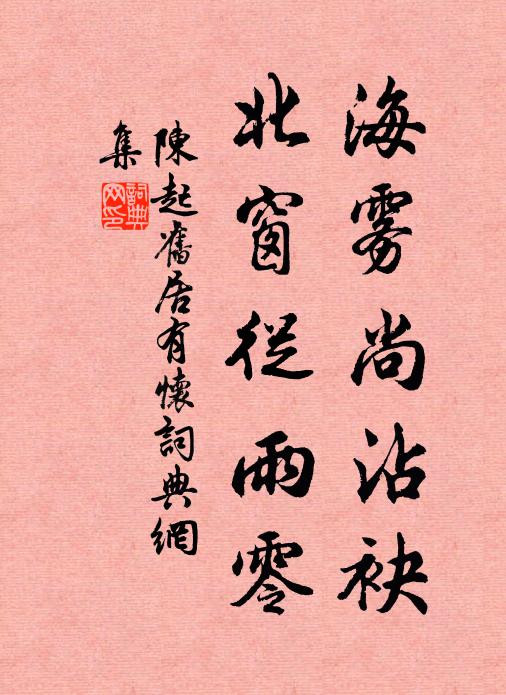 海雾尚沾袂
北窗從雨零
陳起舊居有懷詞典網
集
詞典网印